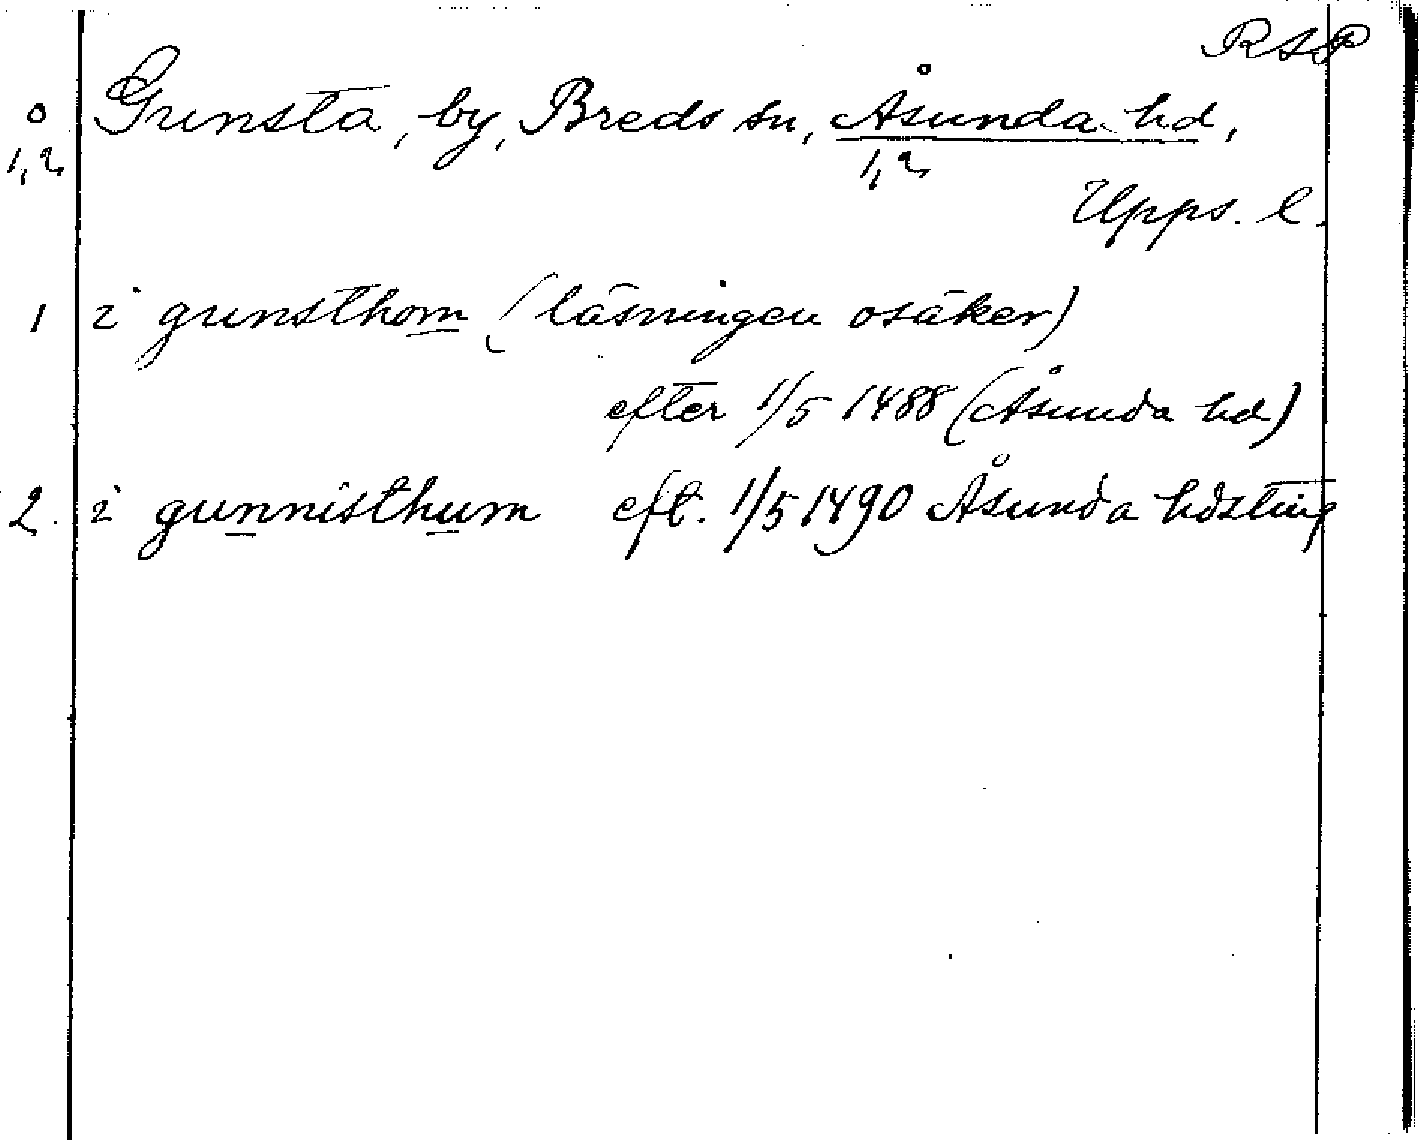 RAP
o Gunsta, by, Breds sn, Åsunda hd,
1,2 1,2
Upps. l.
1 i gunsthom (läsningen osäker)
efter 1/5 1488 (Åsunda hd)
2. i gunnisthum eft. 1/5 1490 Åsunda hdsting